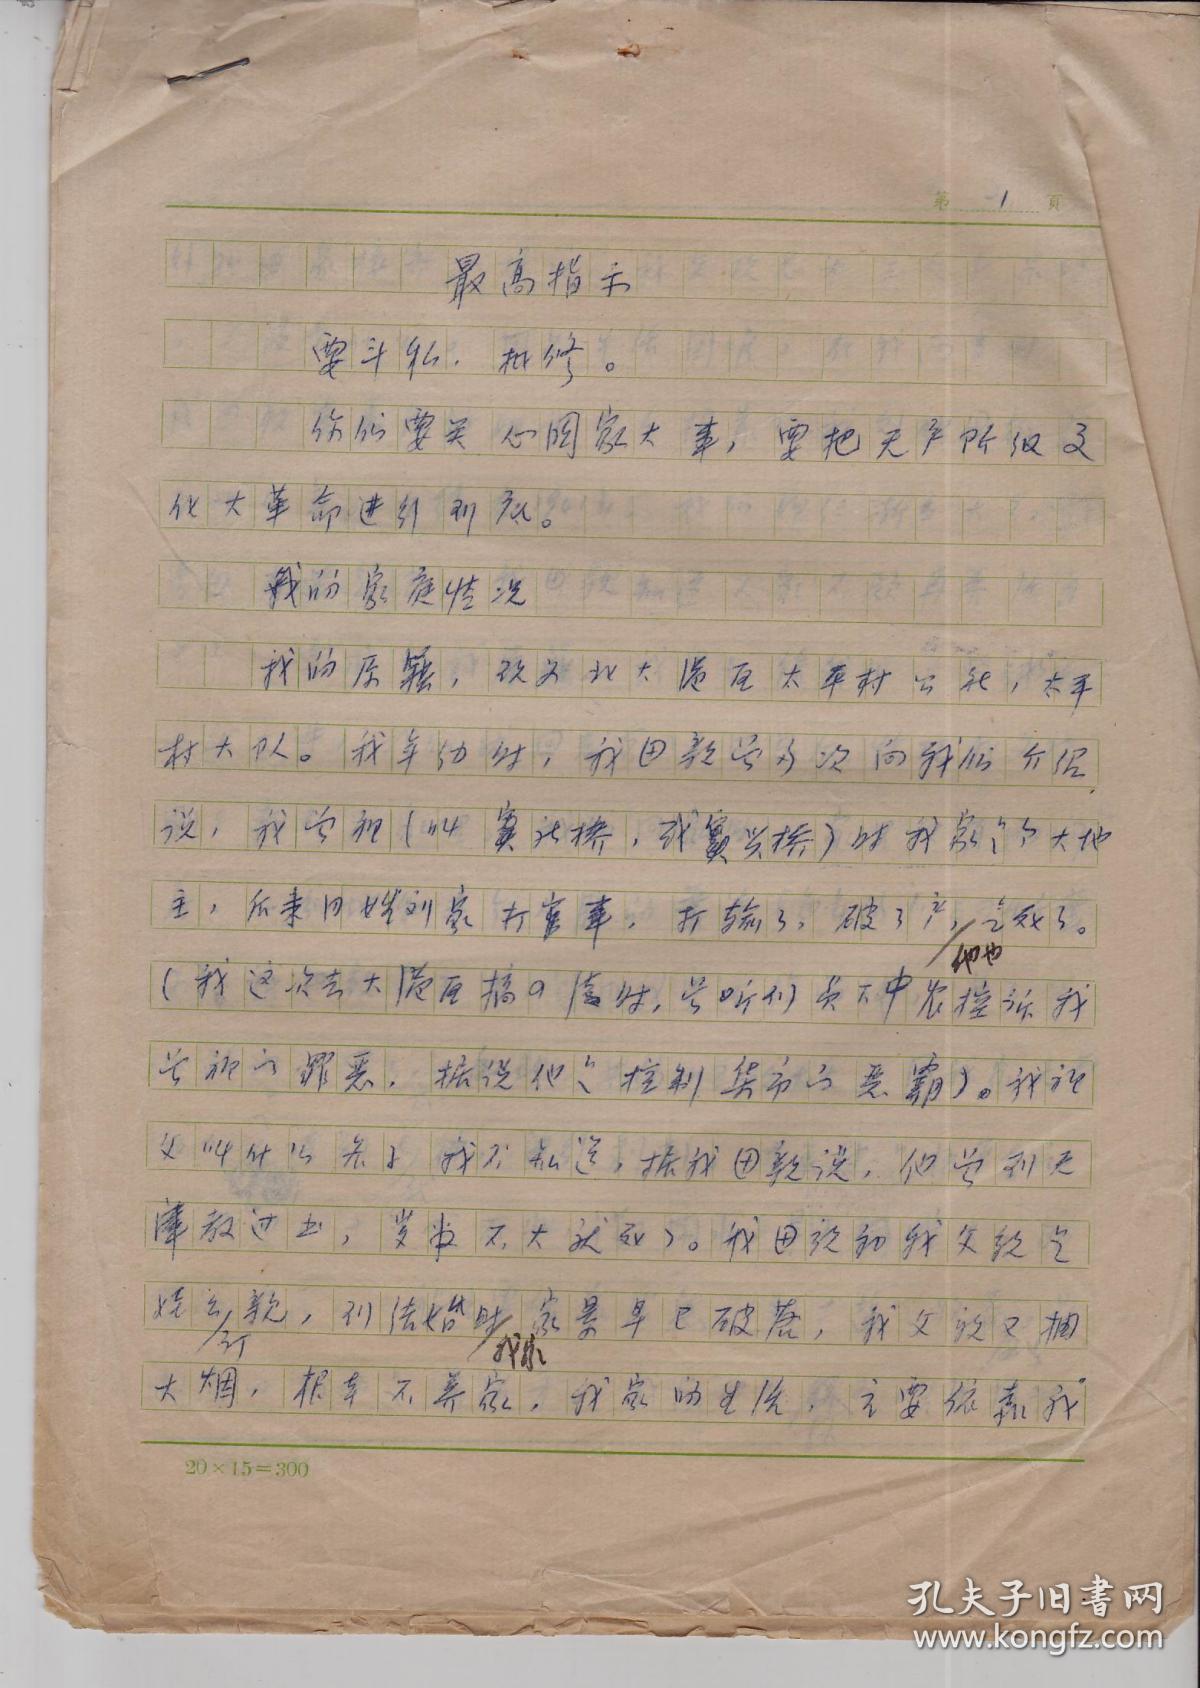 第 1 頁
最高指示
要斗私、批修。
你们要关心国家大事，要把无产阶级文
化大革命进行到底。
我的家庭情况
我的原籍，现为北大港区太平村公社，太平
村大队。我年幼时，我母亲曾多次向我们介绍
说，我曾祖（叫窦 桥，或窦兴桥）时我家是个大地
主，后来同姓刘家打官事，打输了，破了产，他也气死了。
（我这次去大港区搞四清时，曾听到贫下中农控诉我
曾祖的罪恶，据说他是控制集市的恶霸）。我祖
父叫什么名子我不知道，据我母亲说，他曾到天
津教过书，岁数不大就死了。我母亲和我父亲是
娃娃订亲，到结婚时我家家景早已破落，我父亲又抽
大烟，根本不养家，我家的生活，主要依靠我
20×15=300
孔夫子旧书网
www.kongfz.com